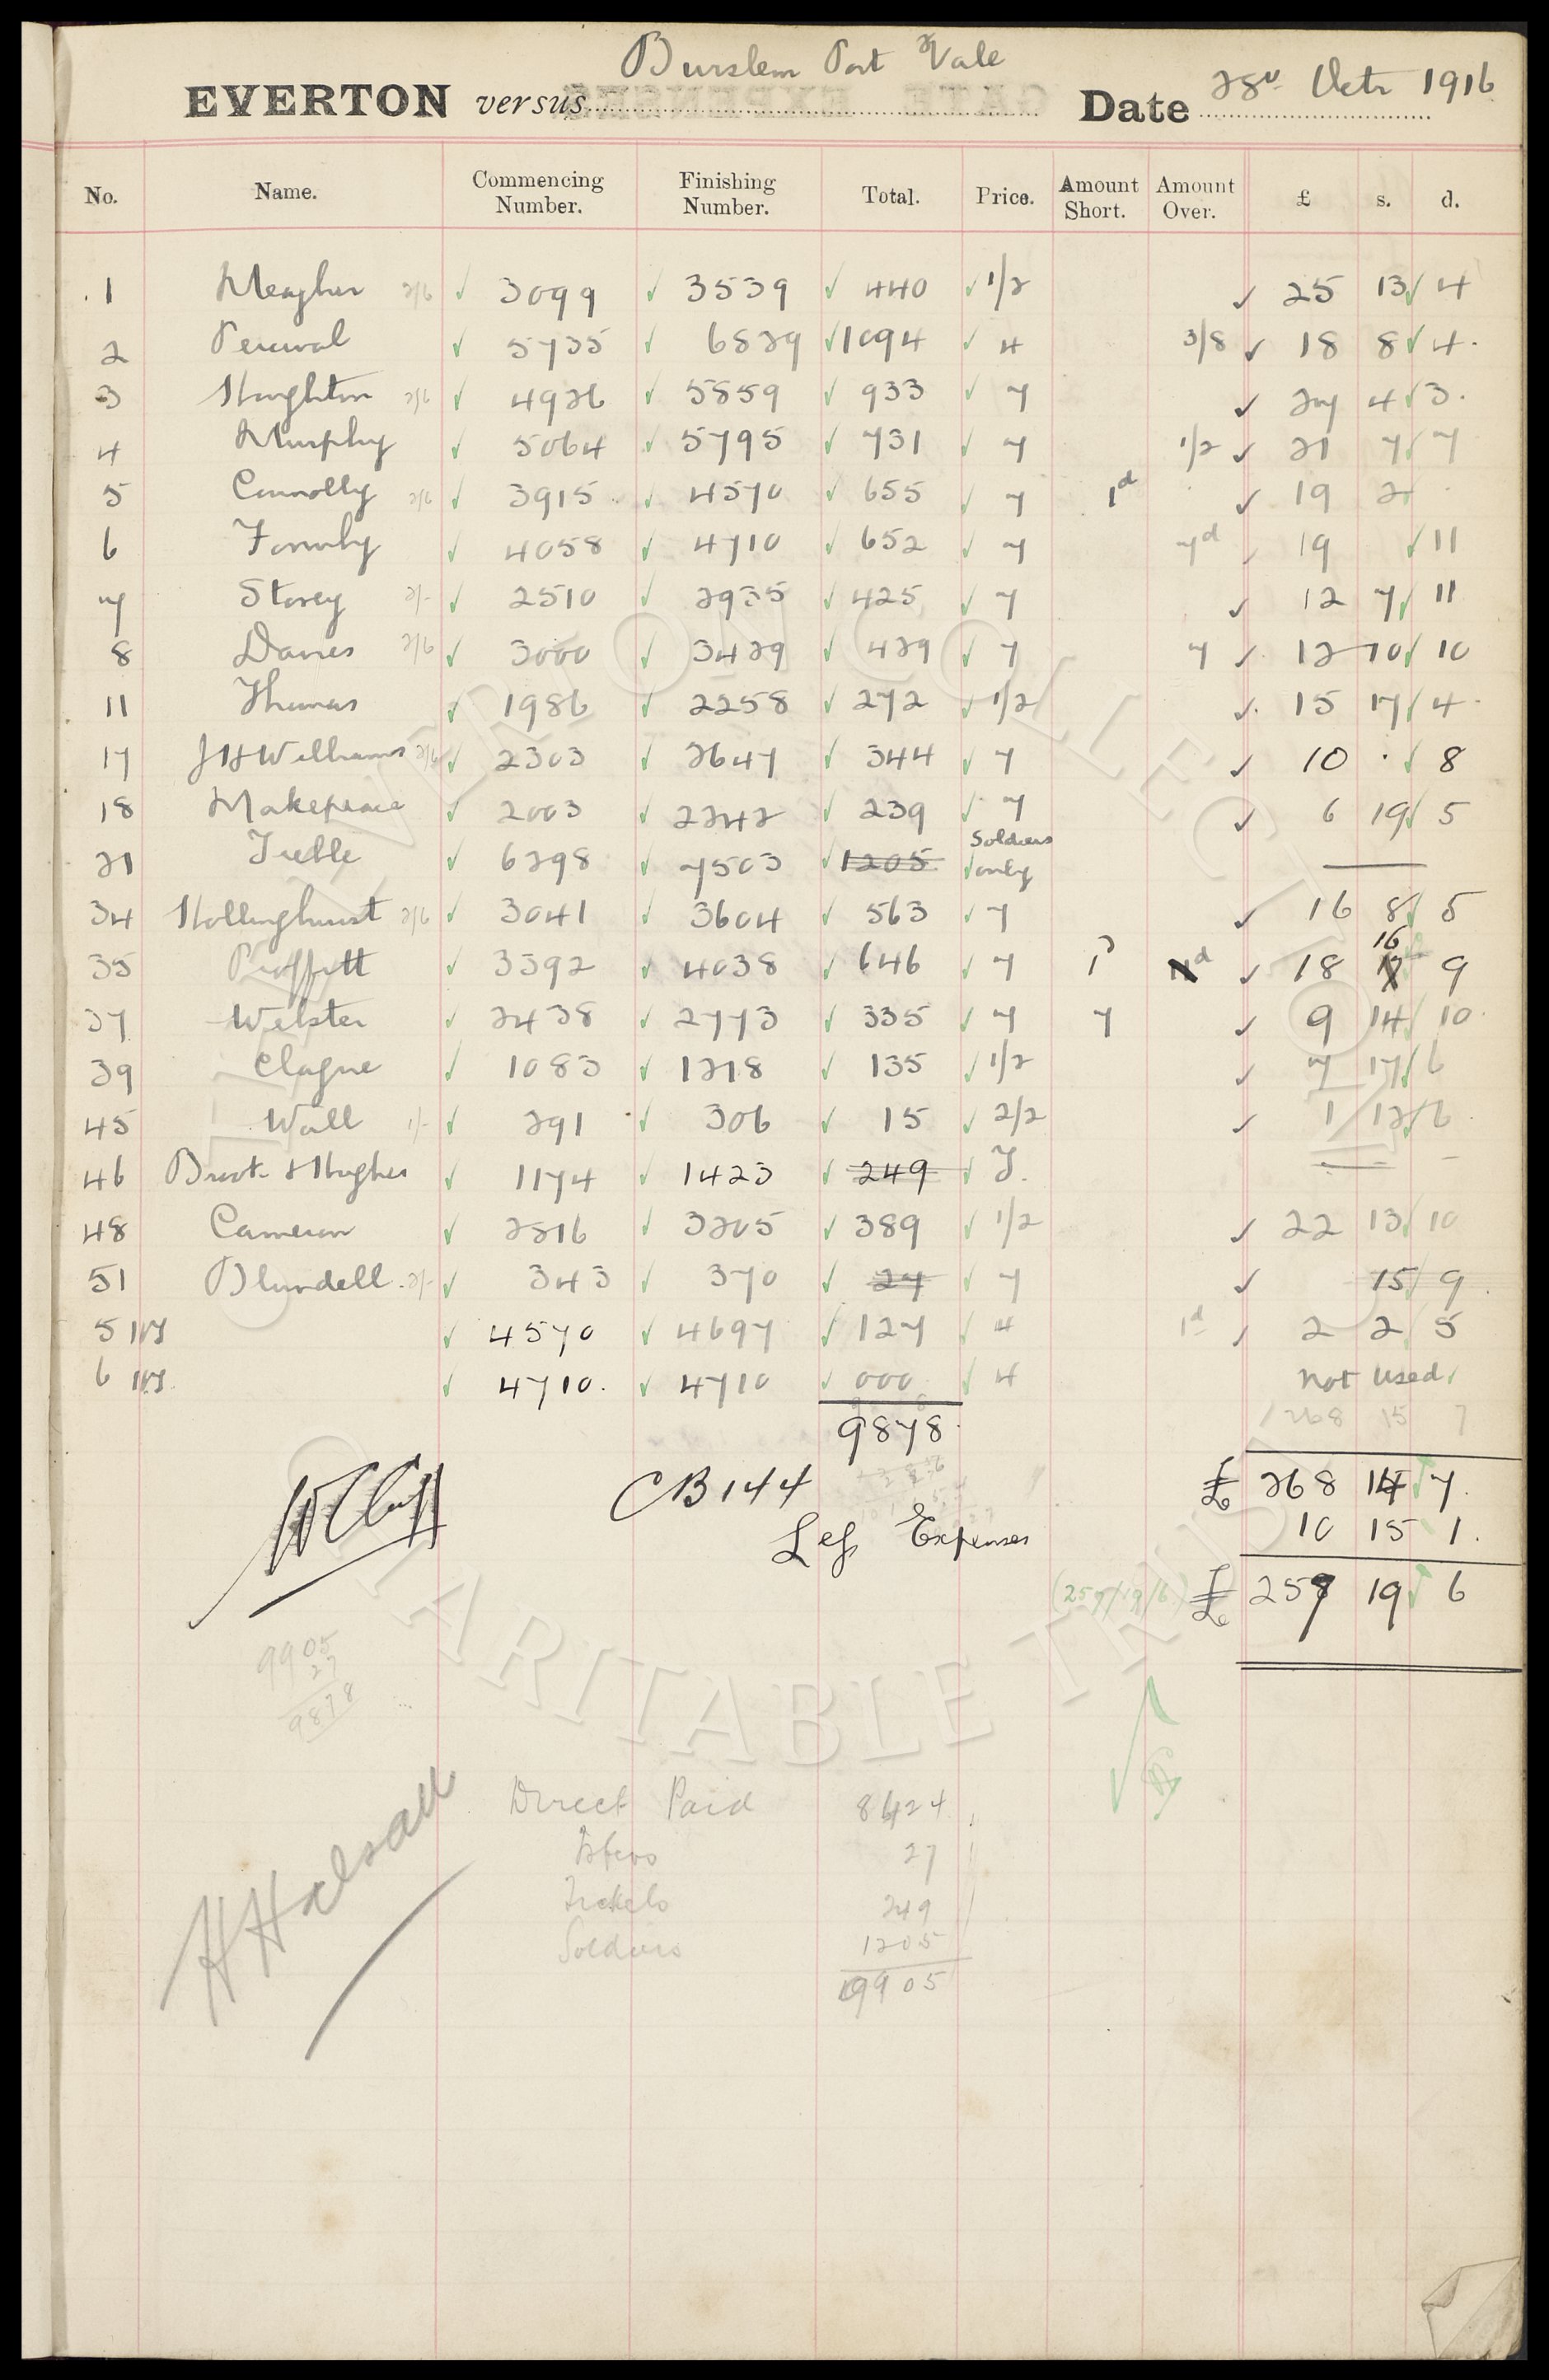 Burslem Port Vale
EVERTON versus Date 28th Octr 1916
No. Name. Commencing Number. Finishing Number. Total. Price. Amount Short. Amount Over. £ s. d.
1 Meagher 2/6 3099 3539 440 1/2 25 13 4
2 Percival 5735 6829 1094 4 3/8 18 8 4
3 Houghton 2/6 4926 5859 933 7 27 4 3
4 Murphy 5064 5795 731 7 1/2 21 7 7
5 Connolly 2/6 3915 4570 655 7 1d 19 2
6 Formby 4058 4710 652 7 7d 19 11
7 Storey 2/- 2510 2935 425 7 12 7 11
8 Davies 2/6 3000 3429 429 7 7 12 10 10
11 Thomas 1986 2258 272 1/2 15 17 4
17 J H Williams 2/6 2303 2647 344 7 10 . 8
18 Makepeace 2003 2242 239 7 6 19 5
21 Treble 6298 7503 1205 Soldiers only
34 Hollinghurst 2/6 3041 3604 563 7 16 8 5
35 Proffitt 3392 4038 646 7 1d 18 16 9
37 Webster 2438 2773 335 7 7 9 14 10
39 Clague 1083 1218 135 1/2 7 17 6
45 Wall 1/- 291 306 15 2/2 1 12 6
46 Brook & Hughes 1174 1423 249 T.
48 Cameron 2816 3205 389 1/2 22 13 10
51 Blundell 2/- 343 370 27 7 15 9
5 4570 4697 127 4 1d 2 2 5
6 4710 4710 000 4 not used
9878 268 15 7
CB 144 £ 268 14 7
Less Expenses 10 15 1
(257/19/6) £ 257 19 6
9905
27
9878
H Halsall
Direct Paid 8424
27
Tickets 249
Soldiers 1205
9905
EVERTON COLLECTION
CHARITABLE TRUST